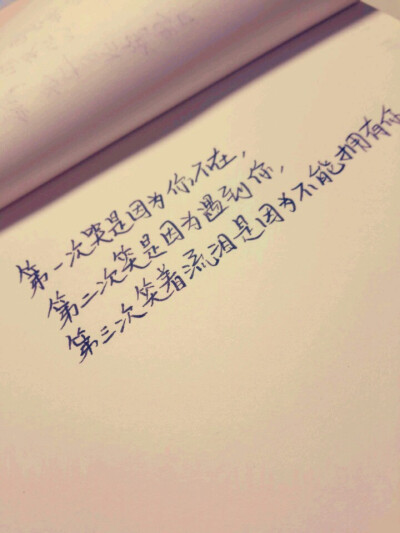 第一次哭是因为你不在,
第二次笑是因为遇到你,
第三次笑着流泪是因为不能拥有你